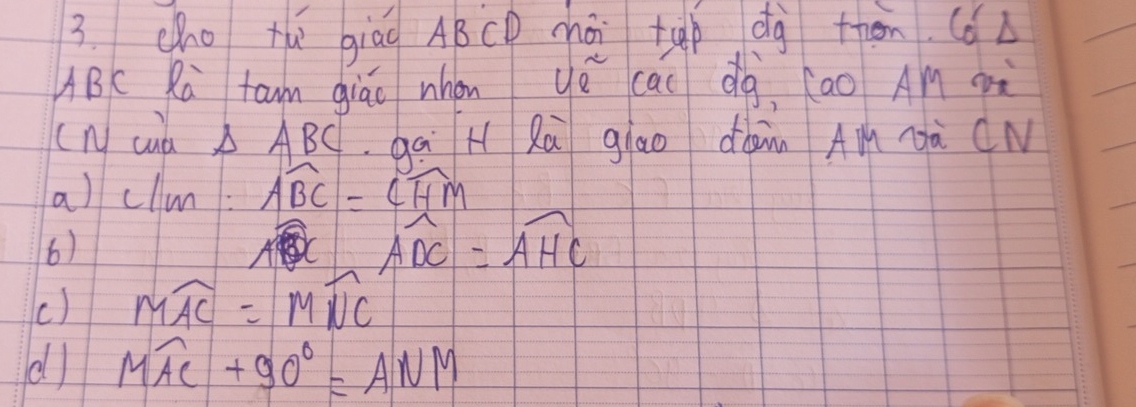 3. Cho tứ giác ABCD nội tiếp đg tròn. Có Δ
ABC là tam giác nhọn vẽ các đg, cao AM và
CN của Δ ABC. gọi H là giao điểm AM và CN
a) c/m : \widehat{ABC} = \widehat{CHM}
b) \widehat{ADC} = \widehat{AHC}
c) \widehat{MAC} = \widehat{MNC}
d) \widehat{MAC} + 90° = ANM